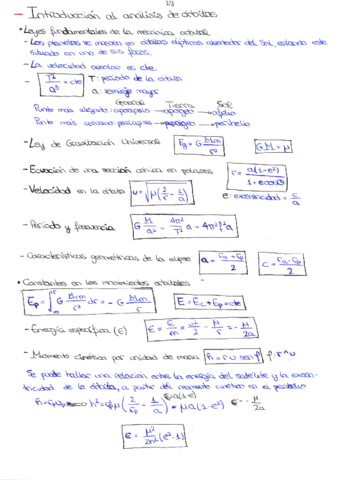 13
- Introducción al análisis de órbitas
• Leyes fundamentales de la mecánica orbital
- Los planetas se mueven en órbitas elípticas alrededor del Sol, estando este
situado en uno de sus focos
- La velocidad areolar es cte
- T²/a³ = cte T: periodo de la órbita
a: semieje mayor
General Tierra Sol
Punto más alejado: apoapsis → apogeo → afelio
Punto más cercano: periapsis → perigeo → perihelio
- Ley de Gravitación Universal Fg = G Mm/r² GM = μ
- Ecuación de una sección cónica en polares r = a(1-e²)/(1+e cosθ)
- Velocidad en la órbita v = √(μ(2/r - 1/a)) e: excentricidad = c/a
- Periodo y frecuencia G M/a² = 4π²/T² a = 4π² f² a
- Características geométricas de la elipse a = (ra + rp)/2 c = (ra - rp)/2
• Constantes en los movimientos orbitales
Ep = ∫ G Mm/r² dr = - G Mm/r E = Ec + Ep = cte
- Energía específica (ε) ε = E/m = v²/2 - μ/r = - μ/2a
- Momento cinético por unidad de masa h = r v sen φ
Se puede hallar una relación entre la energía del satélite y la excen-
tricidad de la órbita, a partir del momento cinético en el perigeo
a(1-e²)
= μa(1-e²) ε = - μ/2a
ε = μ²/2h² (e²-1)